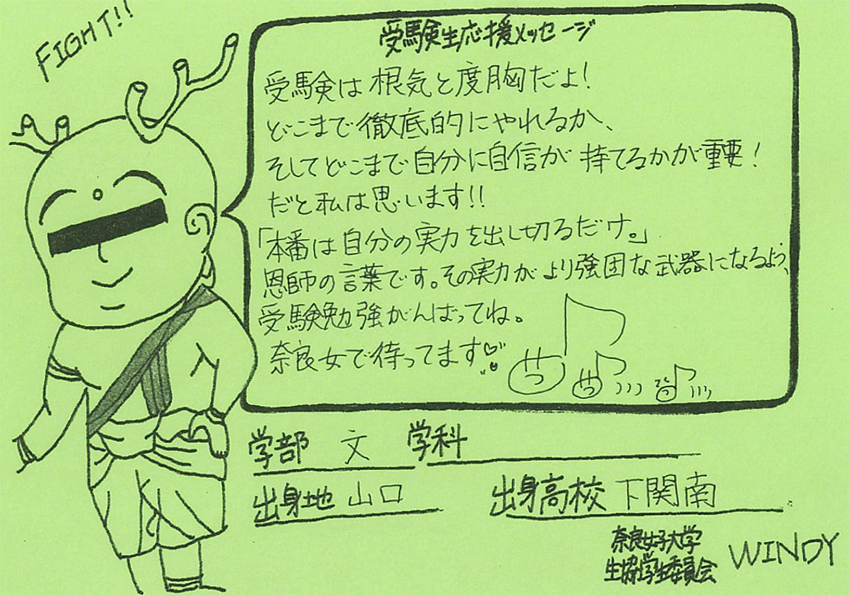 FIGHT!!
受験生応援メッセージ
受験は根気と度胸だよ!
どこまで徹底的にやれるか、
そしてどこまで自分に自信が持てるかが重要!
だと私は思います!!
「本番は自分の実力を出し切るだけ。」
恩師の言葉です。その実力がより強固な武器になるよう、
受験勉強がんばってね。
奈良女で待ってます
学部 文 学科
出身地 山口 出身高校 下関南
奈良女子大学
生協学生委員会 WINDY